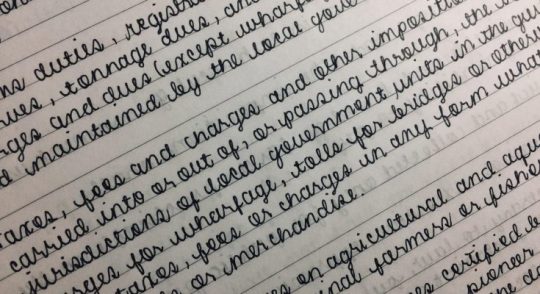 duties, registra
, tonnage dues, an
ges and dues (except wharf
d maintained by the local gove
taxes, fees and charges and other imposition
carried into or out of, or passing through, the
jurisdictions of local government units in the gui
rges for wharfage, tolls for bridges or otherw
taxes, fees or charges in any form what
or merchandise.
es on agricultural and aqua
inal farmers or fisher
es certified b
pioneer